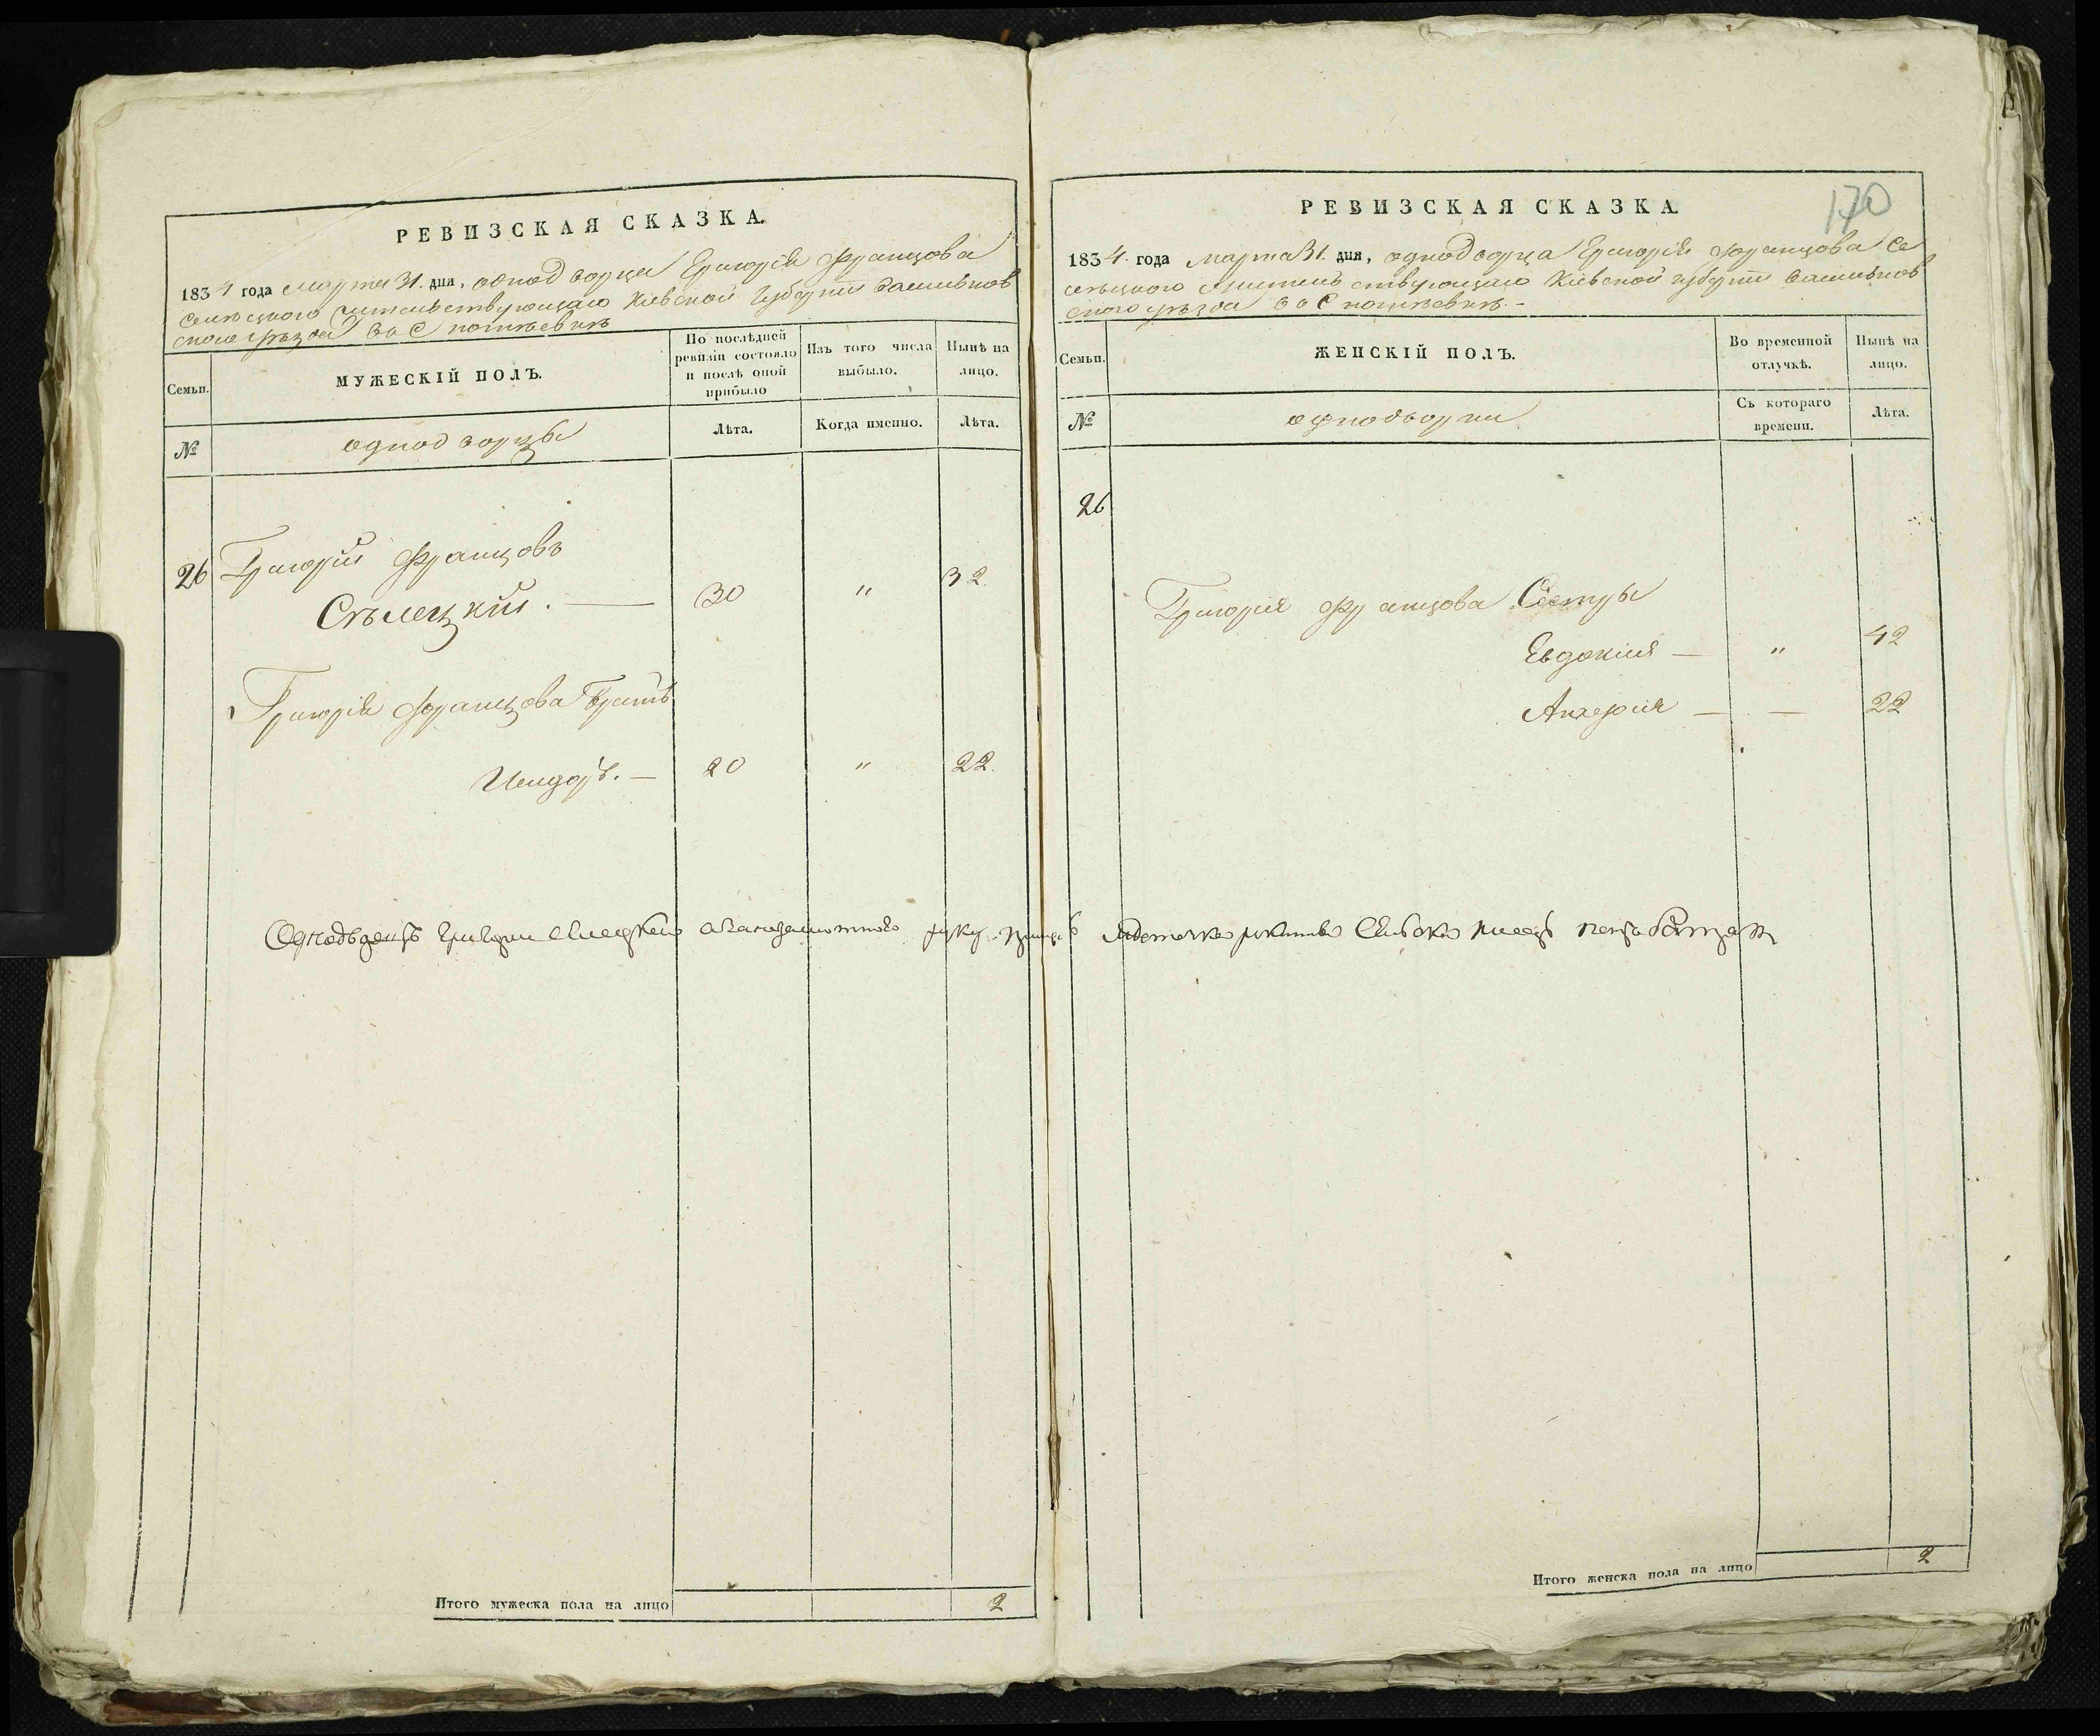 РЕВИЗСКАЯ СКАЗКА.
1834 года Марта 31. дня, однодворца Григорія Францова
Селецкого жительствующаго Кіевской Губерніи Васильков
ского уѣзда въ С
Семьи.
МУЖЕСКІЙ ПОЛЪ.
По послѣдней ревизіи состояло и послѣ оной прибыло
Изъ того числа выбыло.
Нынѣ на лицо.
№
однодворцы
Лѣта.
Когда именно.
Лѣта.
26 Григорій Францовъ
Сѣлецкій. — 30 " 32.
Григорія Францова Братъ
Исидоръ. — 20 " 22.
Однодворецъ руку
Итого мужеска пола на лицо 2
170
РЕВИЗСКАЯ СКАЗКА
1834. года марта 31. дня, однодворца Григорія Францова Се
лецкого жительствующаго Кіевской губерніи Васильков
ского уѣзда въ С
Семьи.
ЖЕНСКІЙ ПОЛЪ.
Во временной отлучкѣ.
Нынѣ на лицо.
№
однодворки
Съ котораго времени.
Лѣта.
26
Григорія Францова Сестры
Евдокія — " 42
— — 22
Итого женска пола на лицо 2